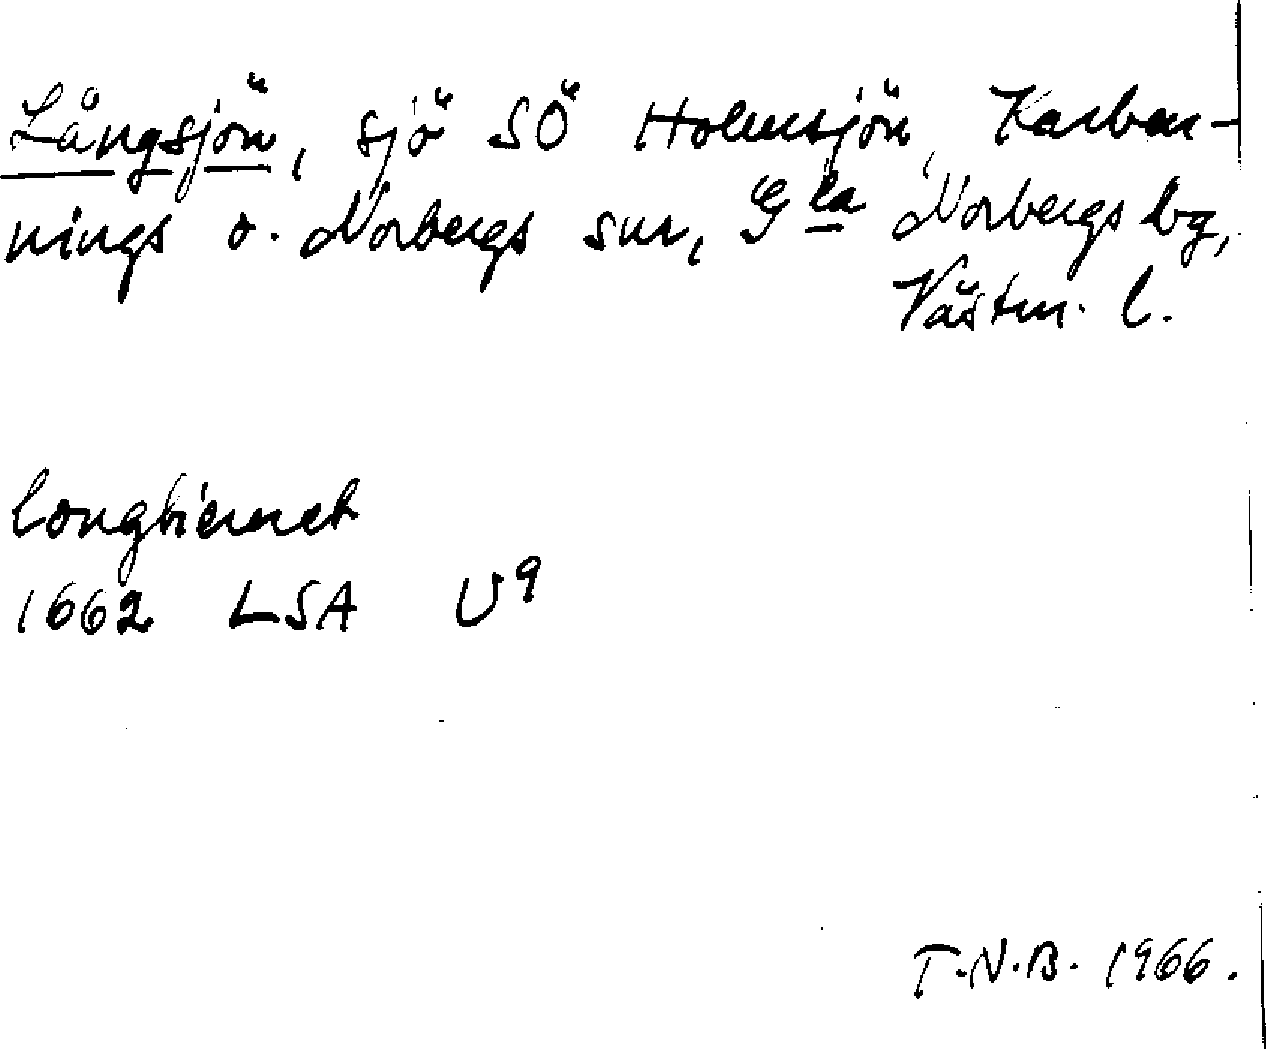 Långsjön, sjö SÖ Holmsjön, Karben-
nings o. Norbergs snr, Gla Norbergs bg,
Västm. l.
longtiernet
1662 LSA U9
T.N.B. 1966.